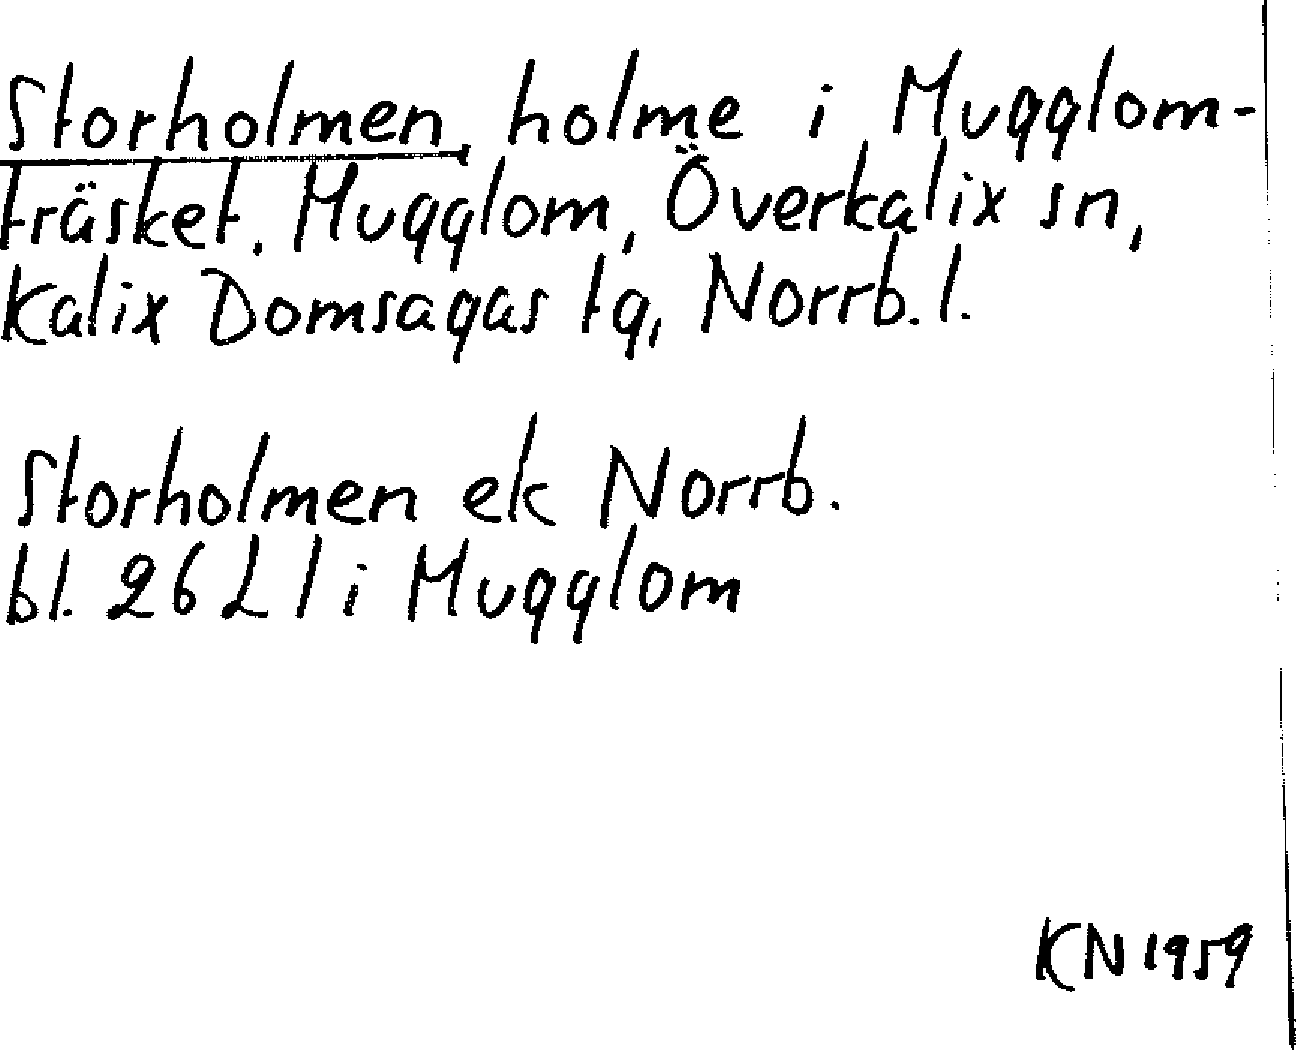 Storholmen, holme i Mugglom-
träsket. Mugglom, Överkalix sn,
Kalix Domsagas tg, Norrb. l.
Storholmen ek Norrb.
bl. 26 L l i Mugglom
KN 1959